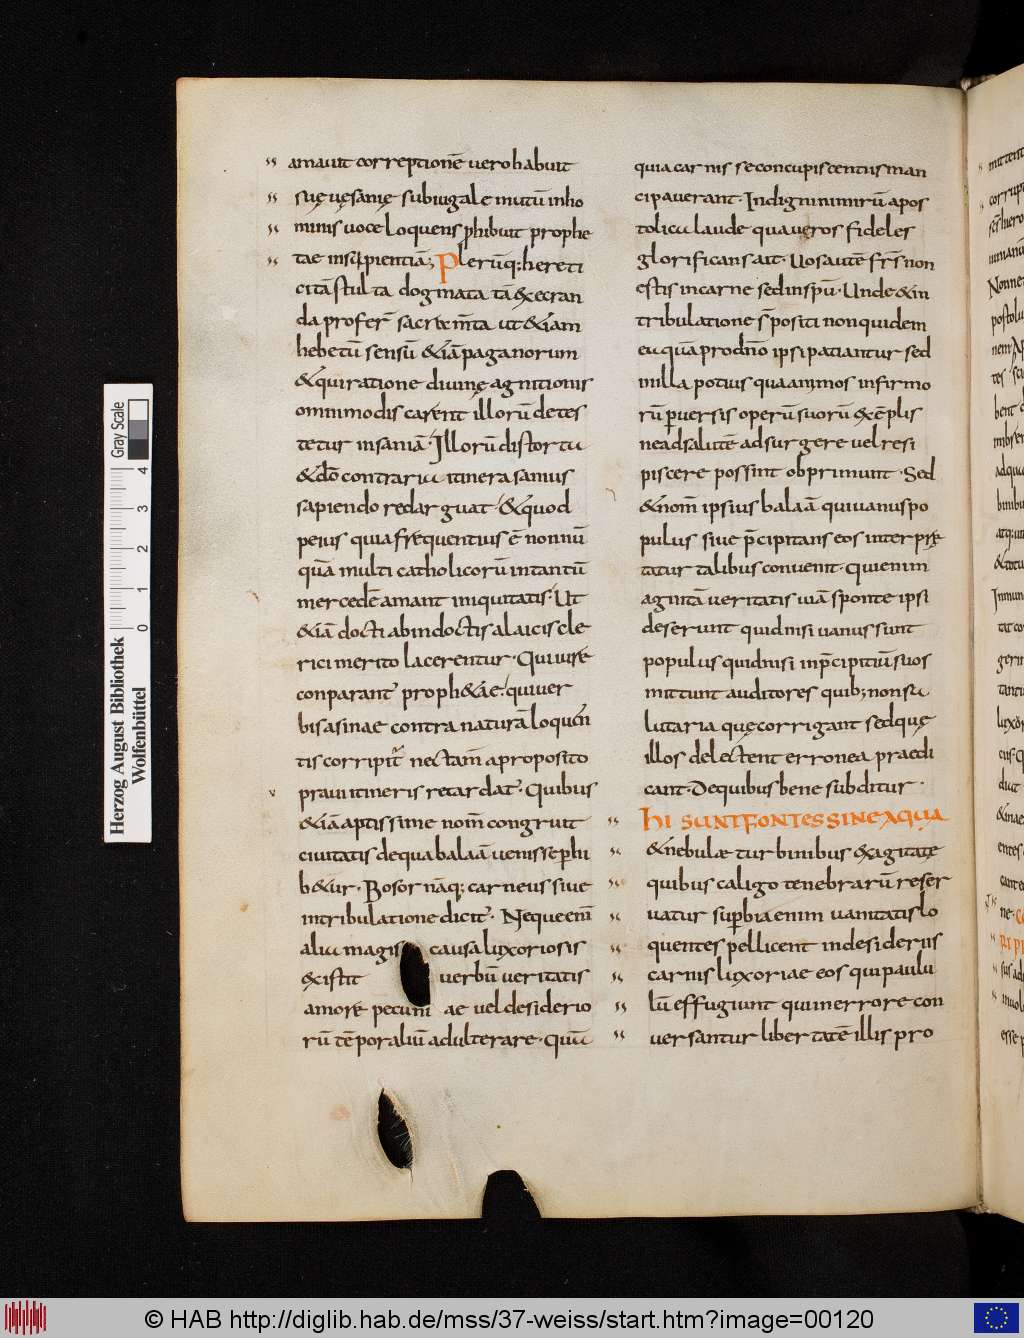 amauit correptionē uero habuit
suę uęsanię subiugale mutū inho
minis uoce loquens phibuit prophe
tae insipientiā; Plerūq; hereti
ci tā stulta dogmata tā &xecran
da profer̄ sacramta ut &iam
hebetū sensū &iā paganorum
& qui ratione diuinę agnitionis
omnimodis carent illorū detes
tetur insaniā · Illorū distortu
& dō contrariu itinera sanius
sapiendo redarguat · & quod
peius quia frequentius ē nonnū
quā multi catholicorū in tantū
mercedē amant iniquitatis · Ut
&iā docti ab indoctis a laicis cle
rici merito lacerentur · Qui iure
conparant proph&ae · qui uer
bis asinae contra naturā loquen
tis corripit nec tam a proposito
praui itineris retardat · Quibus
&iā aptissime nom̄ congruit
ciuitatis de qua balaā uenisse phi
b&ur · Bosor nāq; carneus siue
in tribulatione dicit · Neque eni
aliu magis causa luxoriosis
&xistit uerbū ueritatis
amore pecuni ae uel desiderio
rū tēporaliū adulterare · quiu
quia carnis se concupiscentiis man
cipauerant · Indigni nimirū apos
tolicu laude qua ueros fideles
glorificans ait · Uos autē frs̄ non
estis in carne sed in spū · Unde & in
tribulatione s positi non quidem
eu quā pro dn̄o ipsi patiantur sed
in illa potius qua animos infirmo
rū puersis operū suorū &xēplis
ne ad salutē adsurgere uel resi
piscere possint obprimunt · Sed
& nom̄ ipsius balaā qui uanus po
pulus siue p̄cipitans eos interpre
tatur talibus conuenit · Qui enim
agnitā ueritatis uiā sponte ipsi
deserunt quid nisi uanus sunt
populus quid nisi in p̄cipitiū suos
mittunt auditores quib; non sa
lutaria quę corrigant sed quę
illos delectent erronea praedi
cant · De quibus bene subditur ·
HI SUNT FONTES SINE AQUA
& nebulae turbinibus &xagitatę
quibus caligo tenebrarū reser
uatur superbia enim uanitatis lo
quentes pellicent in desideriis
carnis luxoriae eos qui paulu
lū effugiunt qui in errore con
uersantur libertatē illis pro
Gray Scale
0 1 2 3 4
Herzog August Bibliothek
Wolfenbüttel
© HAB http://diglib.hab.de/mss/37-weiss/start.htm?image=00120